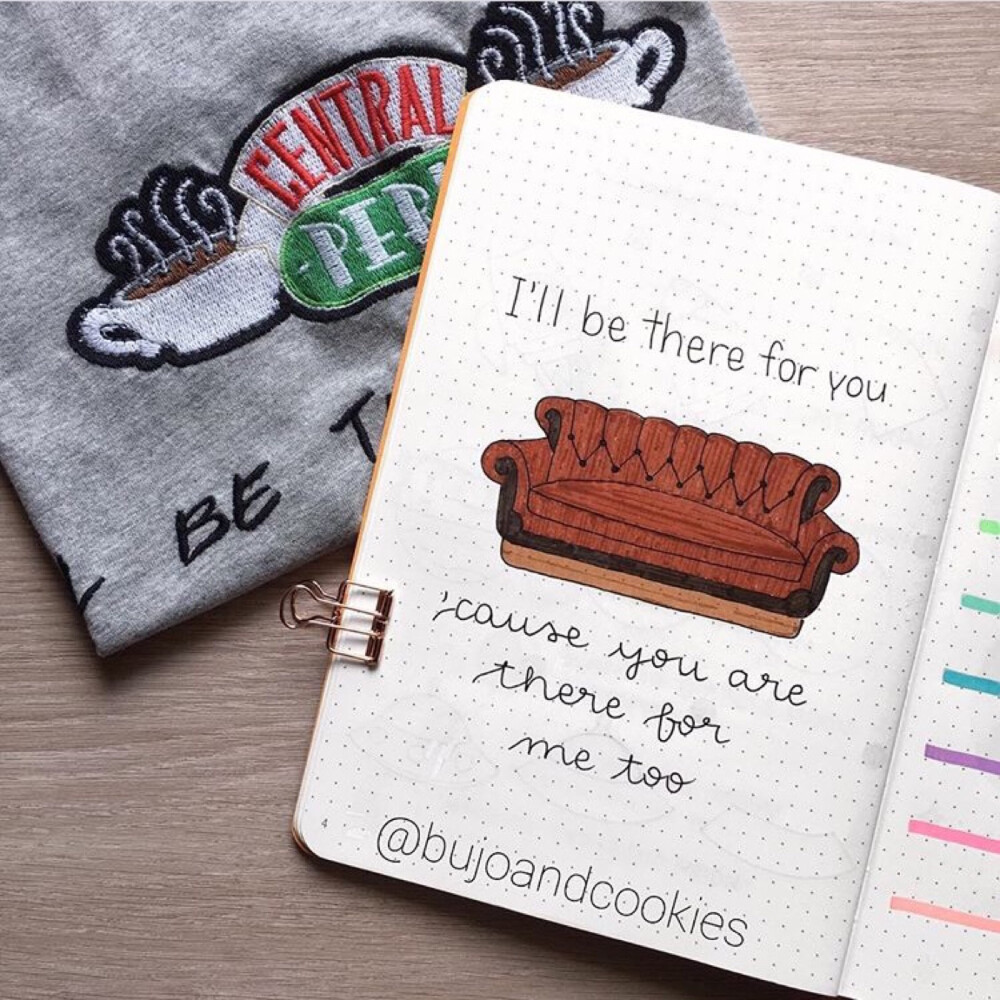 CENTRAL
BE
I'll be there for you
'cause you are
there for
me too
4
@bujoandcookies